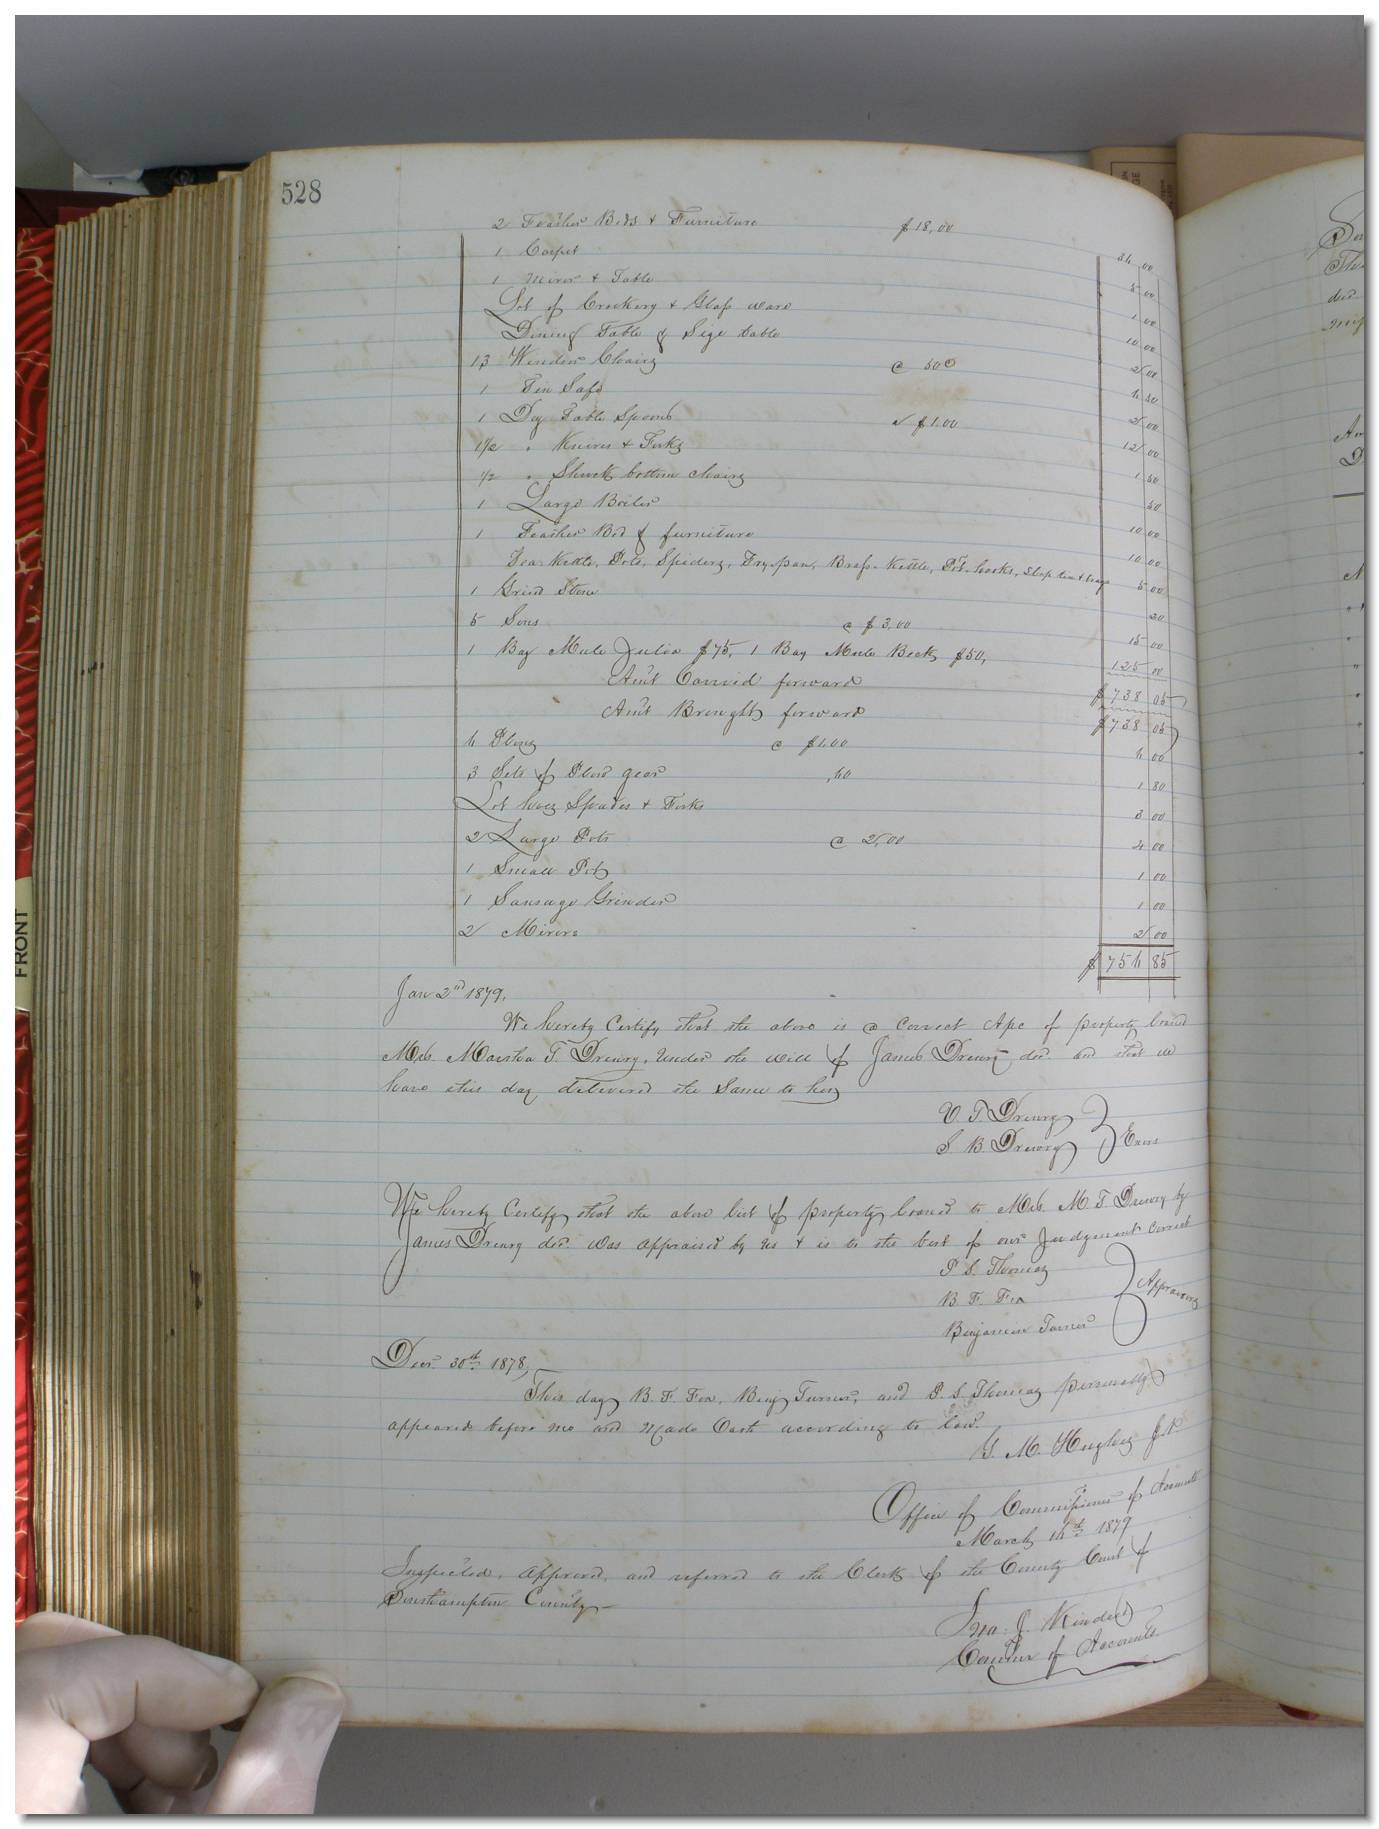 528
2 Feather Beds & Furniture $18,00 36 00
1 Carpet 5 00
1 Mirror & Table 1 00
Lot of Crockery & Glass ware 10 00
Dining Table & Side table 2 00
13 Windsor Chairs @ 50c
1 Tin Safe 2 00
1 Doz Table Spoons $1.00 12 00
1½ " Knives & Forks 1 50
½ " Shuck bottom chairs 50
1 Large Boiler 10 00
1 Feather Bed & furniture 10 00
Tea Kettle, Pots, Spiders, Fry-pan, Brass-Kettle, Pot-hooks, 5 00
1 Grind Stone 20
5 Sows @ $3,00 15 00
1 Bay Mule Julia $75, 1 Bay Mule Beck $50, 125 00
Am't Carried forward $738 05
Am't Brought forward $738 05
4 Plows @ $1.00 4 00
3 Sets of Plow gear ,60 1 80
Lot hoes Spades & Forks 3 00
2 Large Pots @ 2,00 4 00
1 Small Pot 1 00
1 Sausage Grinder 1 00
2 Mirors 2 00
$ 754 85
Jan 2nd 1879,
We hereby Certify that the above is a correct Apc of property loaned
Mrs. Martha T. Drewry, under the will of James Drewry dec. and that we
have this day delivered the Same to her
V. T. Drewry
S. B. Drewry } Exors
We hereby Certify that the above list of property loaned to Mrs. M T Drewry by
James Drewry dec. was appraised by us & is to the best of our Judgement correct
P. S. Thomas
B. F. Fox } Appraisers
Benjamin Turner
Decr 30th 1878,
This day B. F. Fox, Benj Turner, and P. S. Thomas personally
appeared before me and made Oath according to law.
G. M. Hughes J.P.
Office of Commissioner of Accounts
March 14th 1879
Inspected, approved, and referred to the Clerk of the County Court of
Southampton County—
Jno. J. Kindred
Comr of Accounts.
FRONT